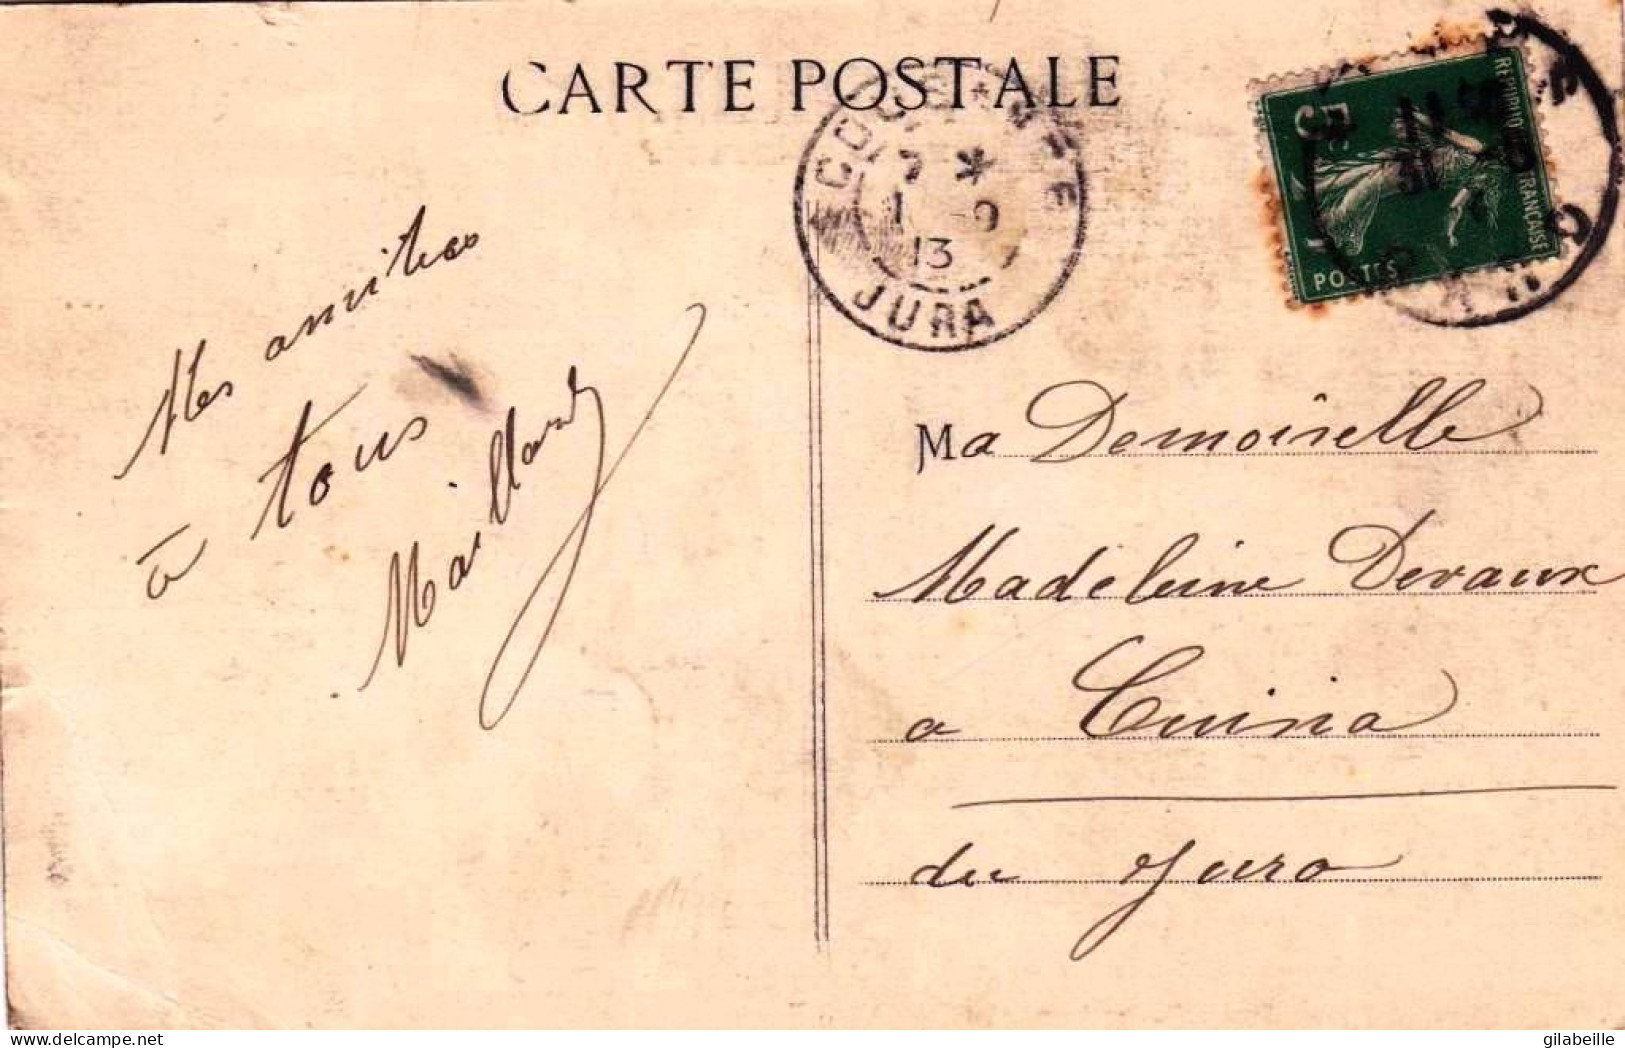 CARTE POSTALE
7 *
13
JURA
RÉPUBLIQUE FRANÇAISE
5c
POSTES
Mes amitiés
à tous
Maillard
Ma Demoiselle
Madeleine Devaux
a Cuisia
du Jura
gilabeille